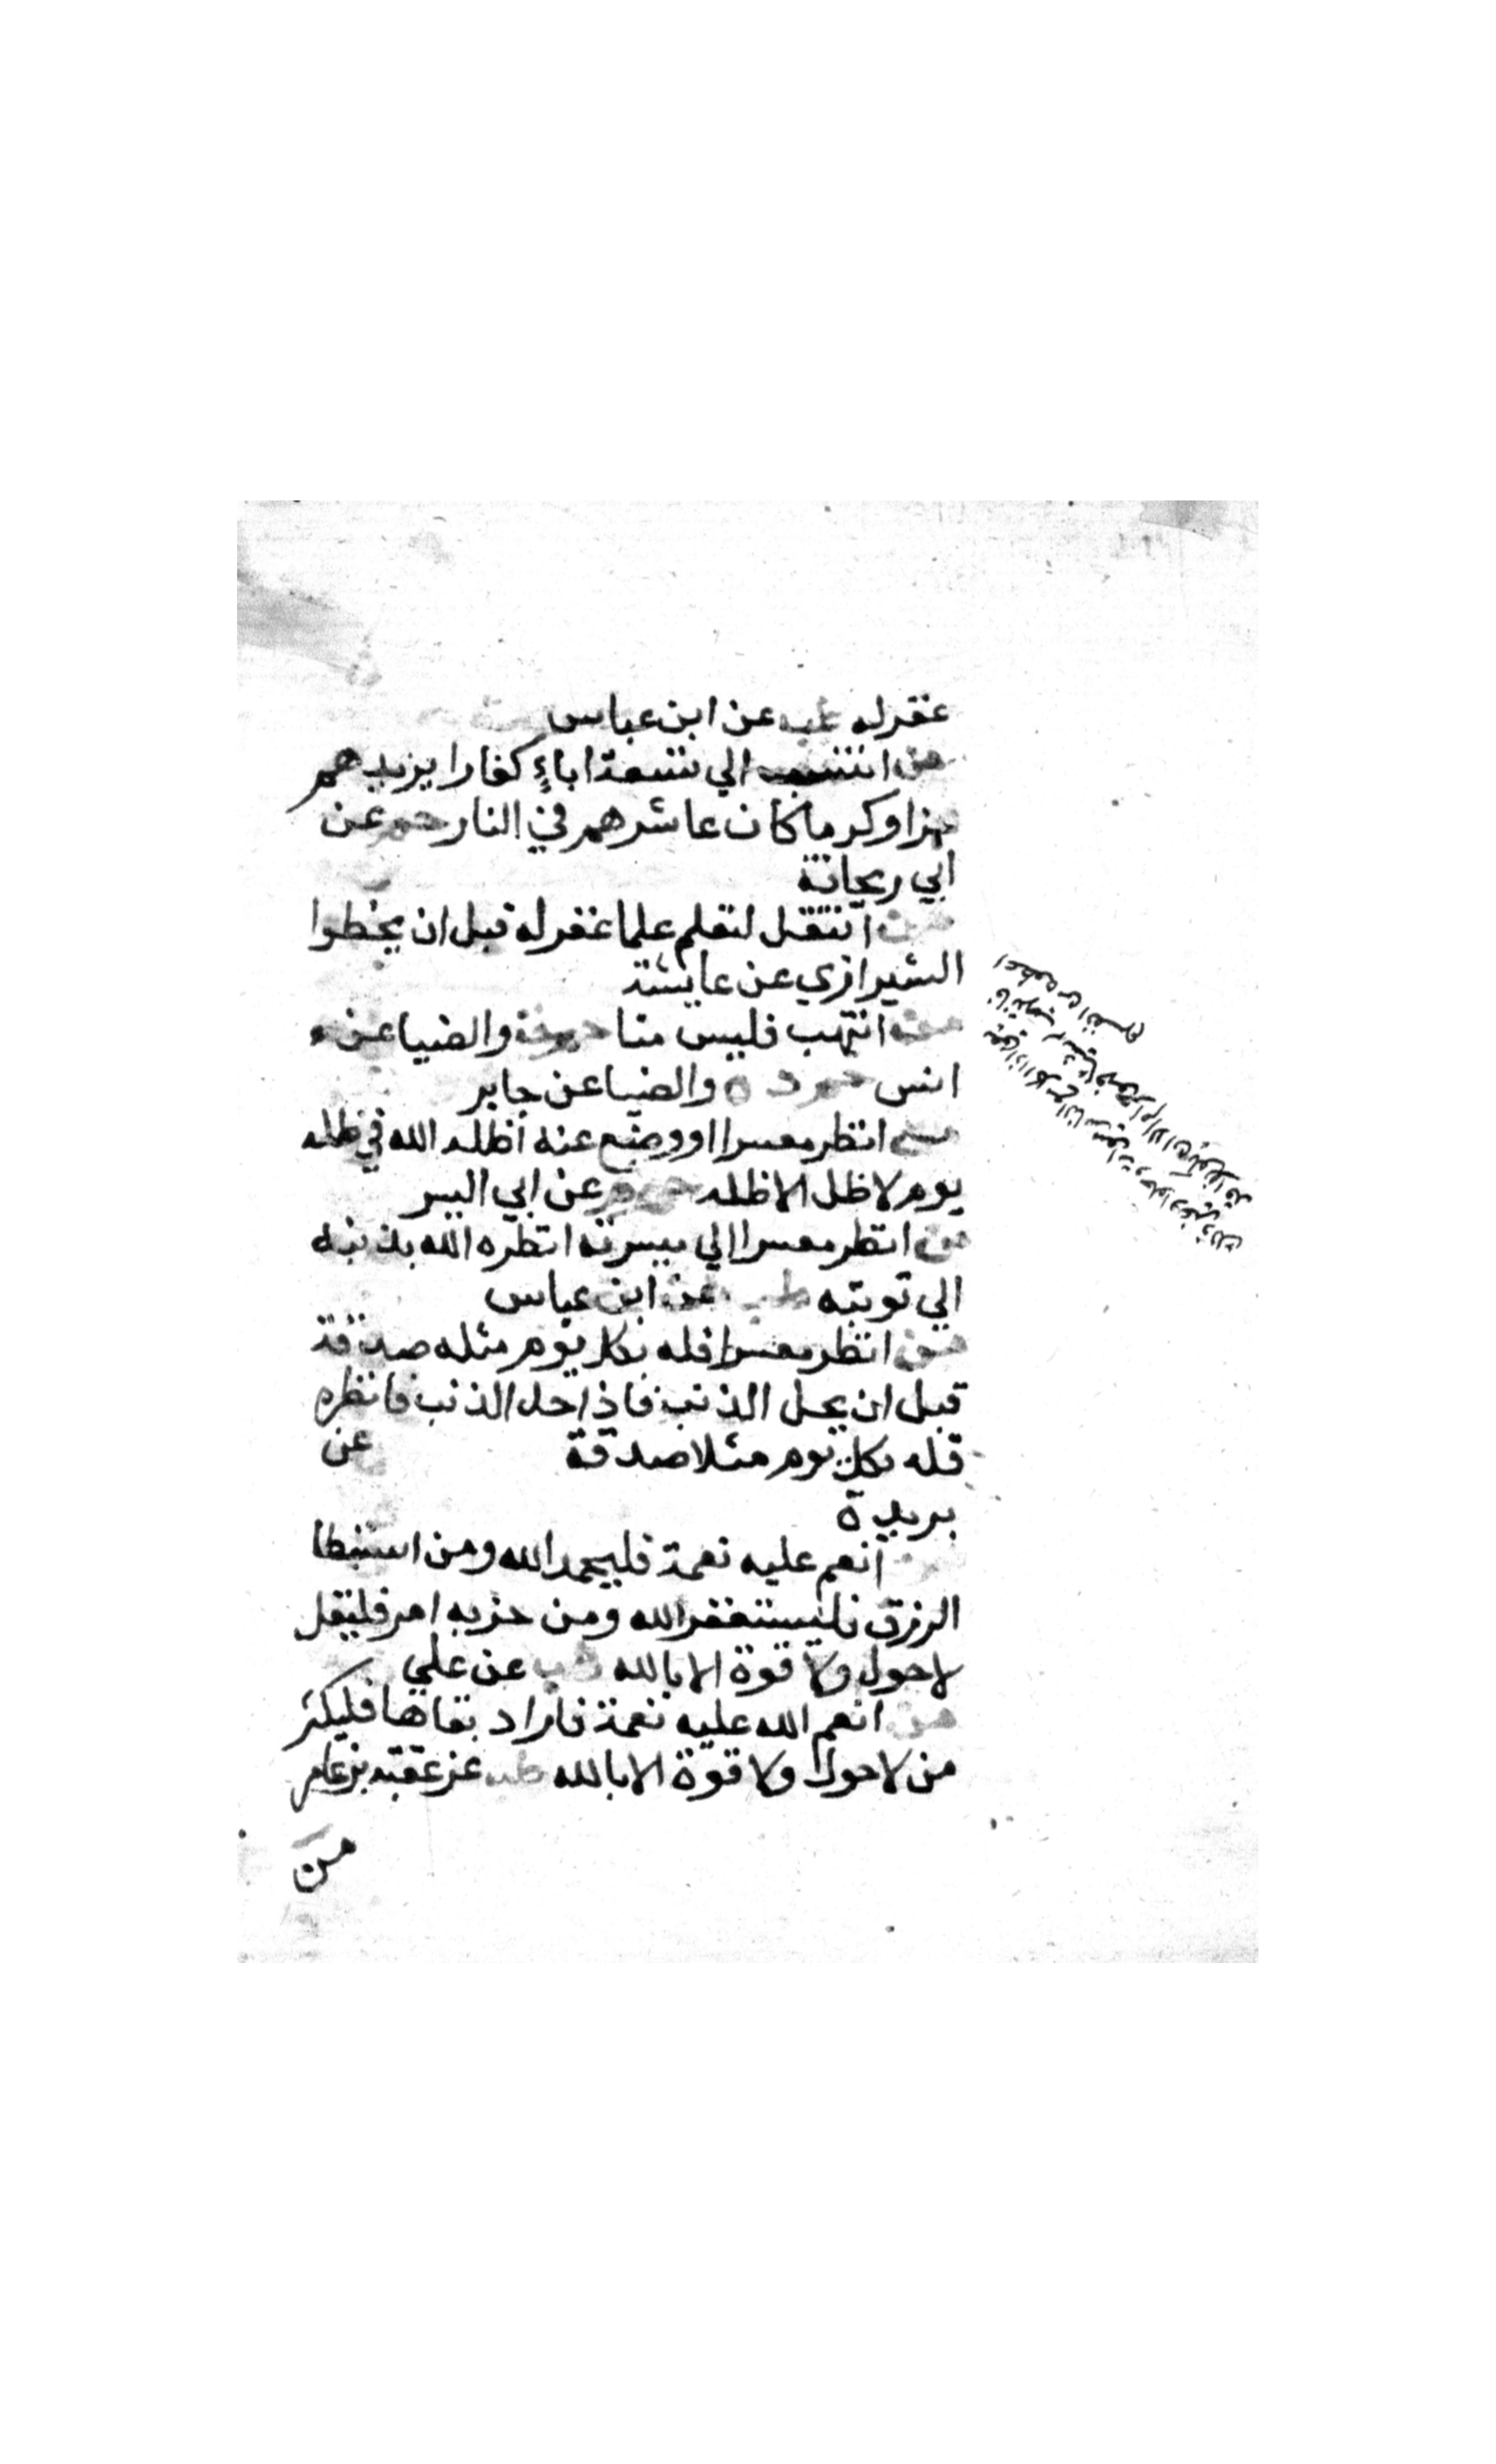 غفر له طب عن ابن عباس
من انتسب الي تسعة اباءٍ كفارا يزيد بهم
بهزا وكرما كان عاشرهم في النار حم عن
ابي ريحانة
من انتقل لتعلم علما غفر له قبل ان يخطوا
الشيرازي عن عايشة
من انتهب فليس منا حم ت والضيا عن
انس حم د ه والضيا عن جابر
من انظر معسرا او وضع عنه اظله الله في ظله
يوم لا ظل الا ظله حم م عن ابي اليسر
من انظر معسرا الي ميسرته انظره الله بذنبه
الي توبته طب عن ابن عباس
من انظر معسرا فله بكل يوم مثله صدقة
قبل ان يحل الذنب فاذا حل الذنب فانظره
فله بكل يوم مثلا صدقة عن
بريدة
انعم عليه نعمة فليحمد الله ومن استبطا
الرزق فليستغفر الله ومن حزبه امر فليقل
لا حول ولا قوة الا بالله هب عن علي
من انعم الله عليه نعمة فاراد بقاها فليكثر
من لا حول ولا قوة الا بالله طب عن عقبة بن عامر
من